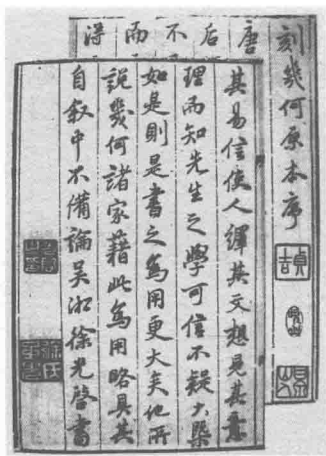 刻幾何原本序
唐
后
不
而
得
其易信使人繹其文想見其意
理而知先生之學可信不疑大槩
如是則是書之為用更大矣他所
説幾何諸家藉此為用略具其
自叙中不備論吳淞徐光啓書